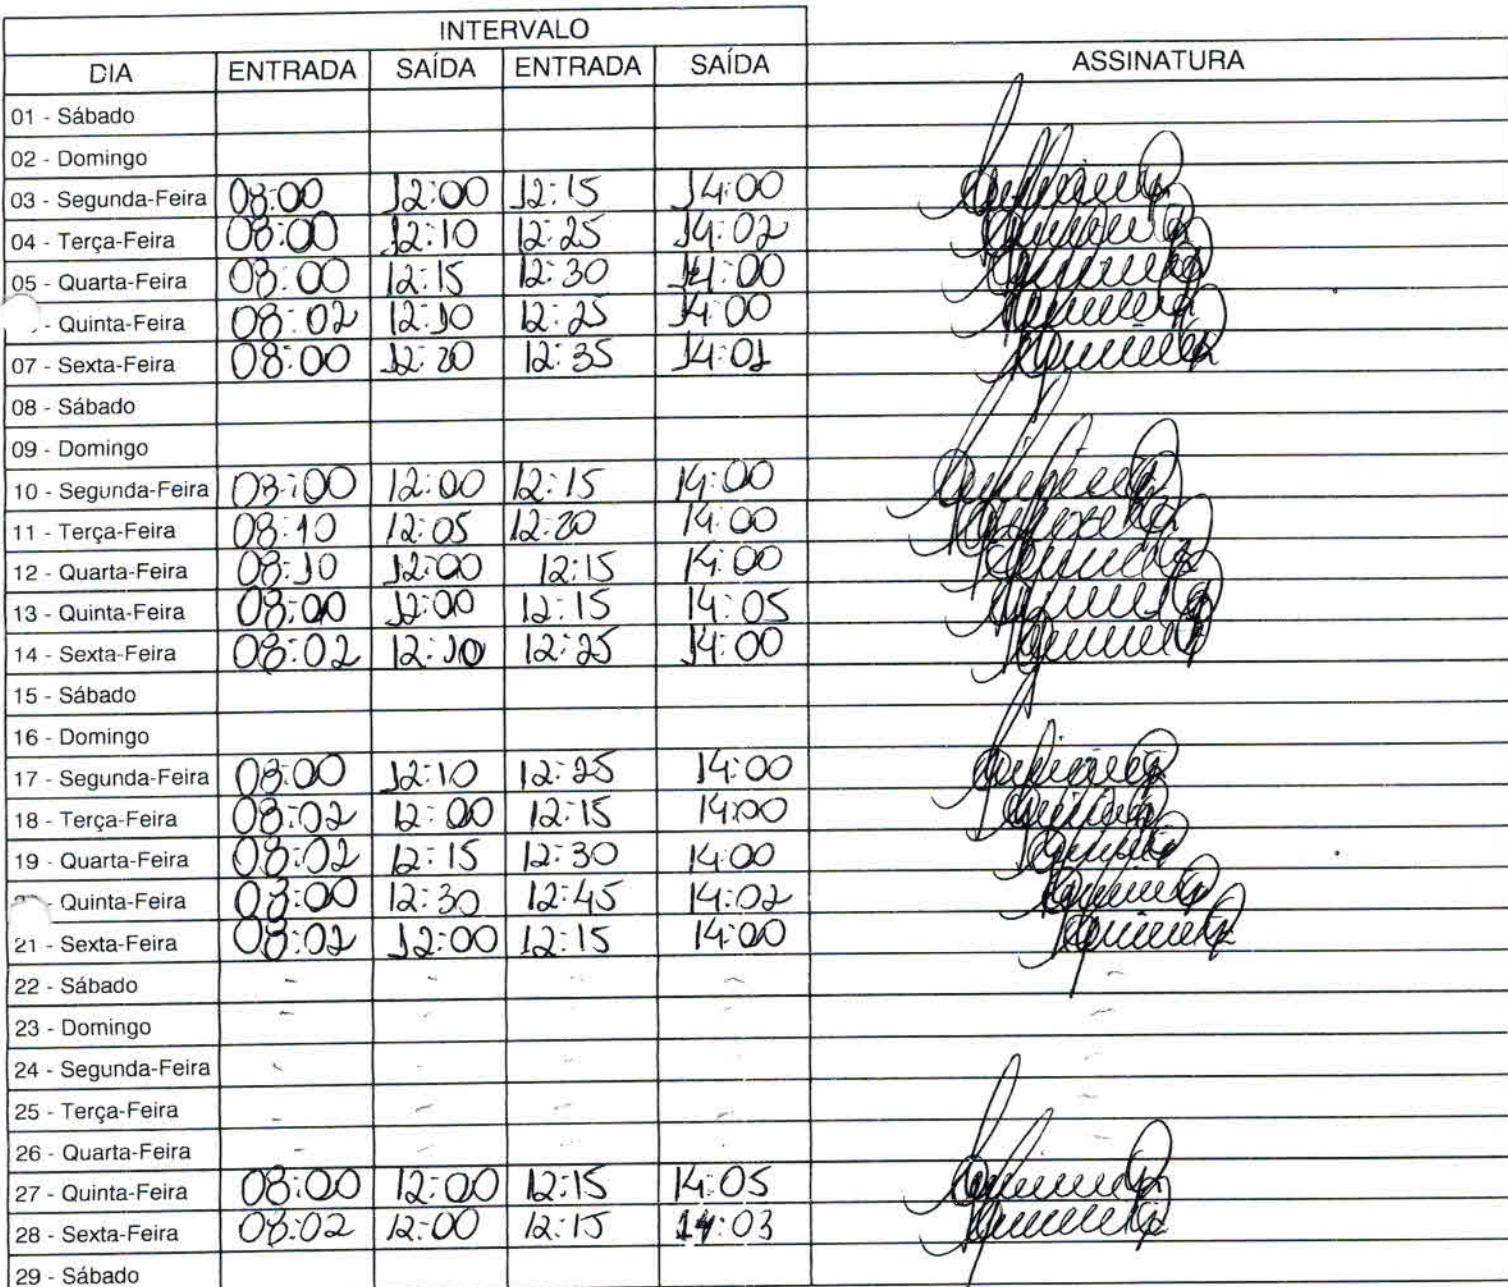 INTERVALO
DIA ENTRADA SAÍDA ENTRADA SAÍDA ASSINATURA
01 - Sábado
02 - Domingo
03 - Segunda-Feira 08:00 12:00 12:15 14:00
04 - Terça-Feira 08:00 12:10 12:25 14:02
05 - Quarta-Feira 08:00 12:15 12:30 14:00
- Quinta-Feira 08:02 12:10 12:25 14:00
07 - Sexta-Feira 08:00 12:20 12:35 14:01
08 - Sábado
09 - Domingo
10 - Segunda-Feira 08:00 12:00 12:15 14:00
11 - Terça-Feira 08:10 12:05 12:20 14:00
12 - Quarta-Feira 08:10 12:00 12:15 14:00
13 - Quinta-Feira 08:00 12:00 12:15 14:05
14 - Sexta-Feira 08:02 12:10 12:25 14:00
15 - Sábado
16 - Domingo
17 - Segunda-Feira 08:00 12:10 12:25 14:00
18 - Terça-Feira 08:02 12:00 12:15 14:00
19 - Quarta-Feira 08:02 12:15 12:30 14:00
- Quinta-Feira 08:00 12:30 12:45 14:02
21 - Sexta-Feira 08:02 12:00 12:15 14:00
22 - Sábado - - - - -
23 - Domingo - - - - -
24 - Segunda-Feira - - - - -
25 - Terça-Feira - - - - -
26 - Quarta-Feira - - - - -
27 - Quinta-Feira 08:00 12:00 12:15 14:05
28 - Sexta-Feira 08:02 12:00 12:15 14:03
29 - Sábado